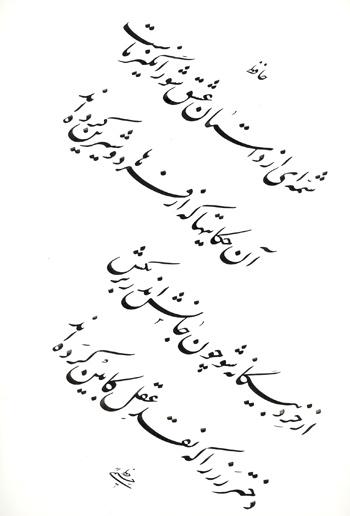 حافظ
شمه‌ای از داستان عشق شورانگیز ماست
آن حکایتها که از فرهاد و شیرین کرده‌اند
از خرد بیگانه شو چون جانش اندر بر بکش
دختر رز را که نقد عقل کابین کرده‌اند